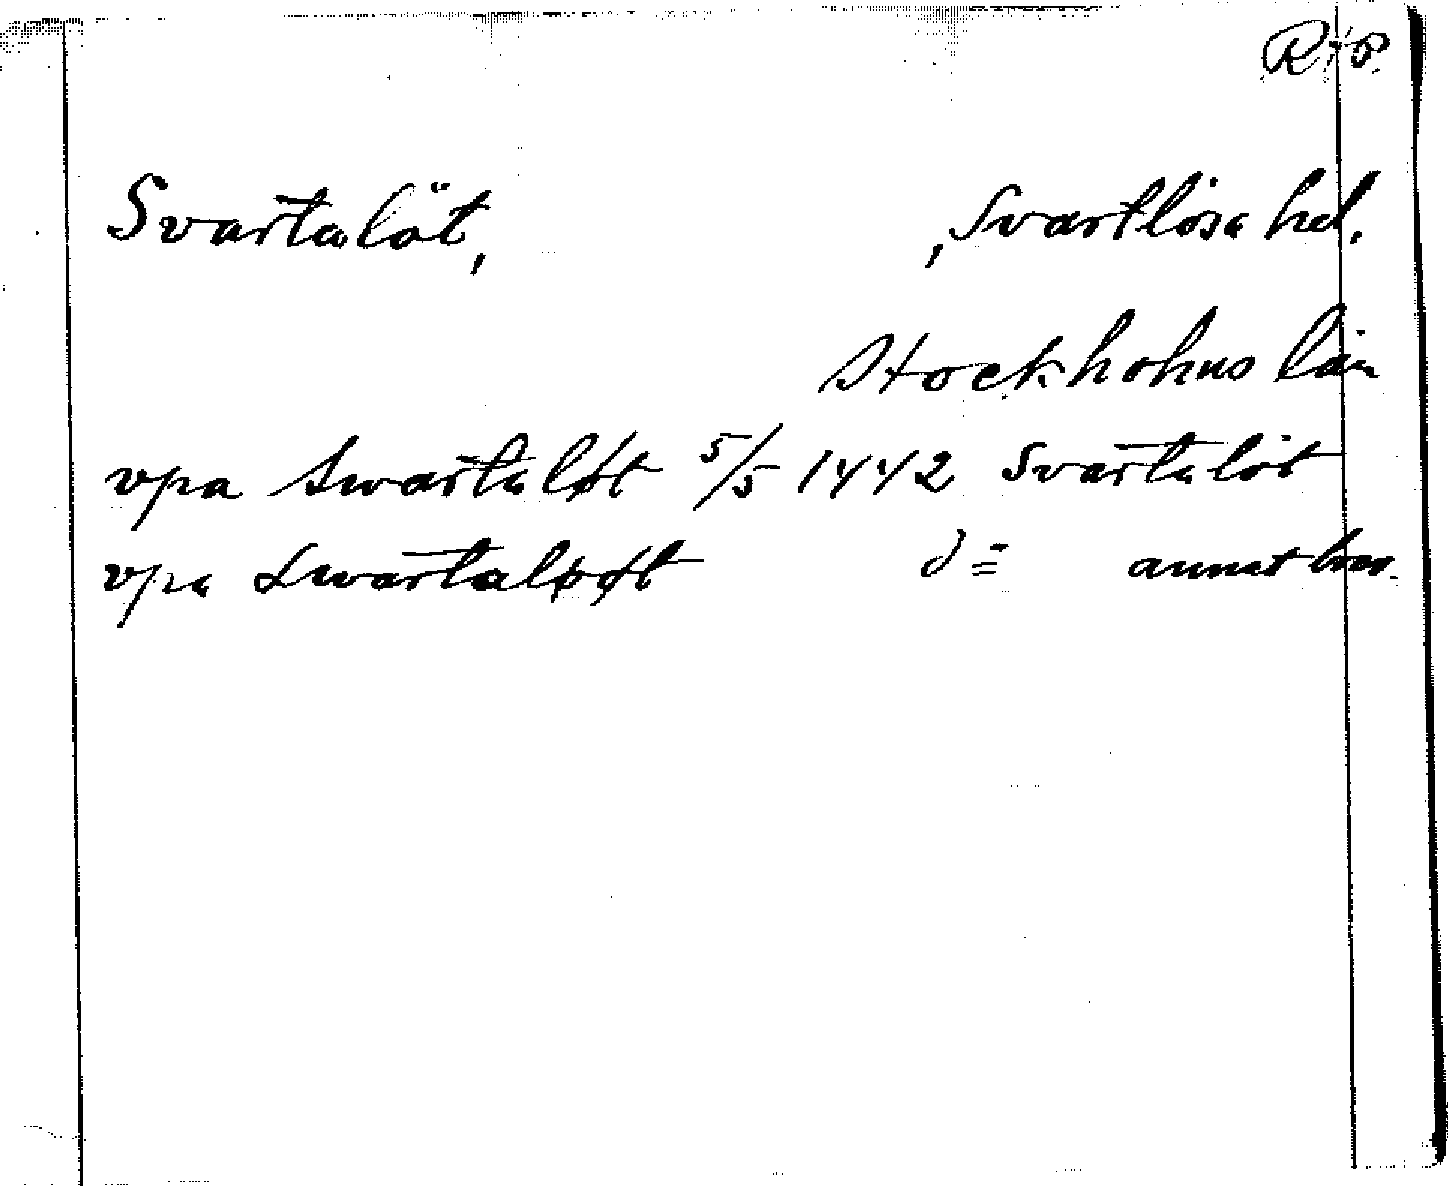 R+P.
Svartalöt, , Svartlösa hd.
Stockholms län
vpa Swartaløt 5/5 1442 Svartalöt
vpa Swartaløøt d = annat brev.